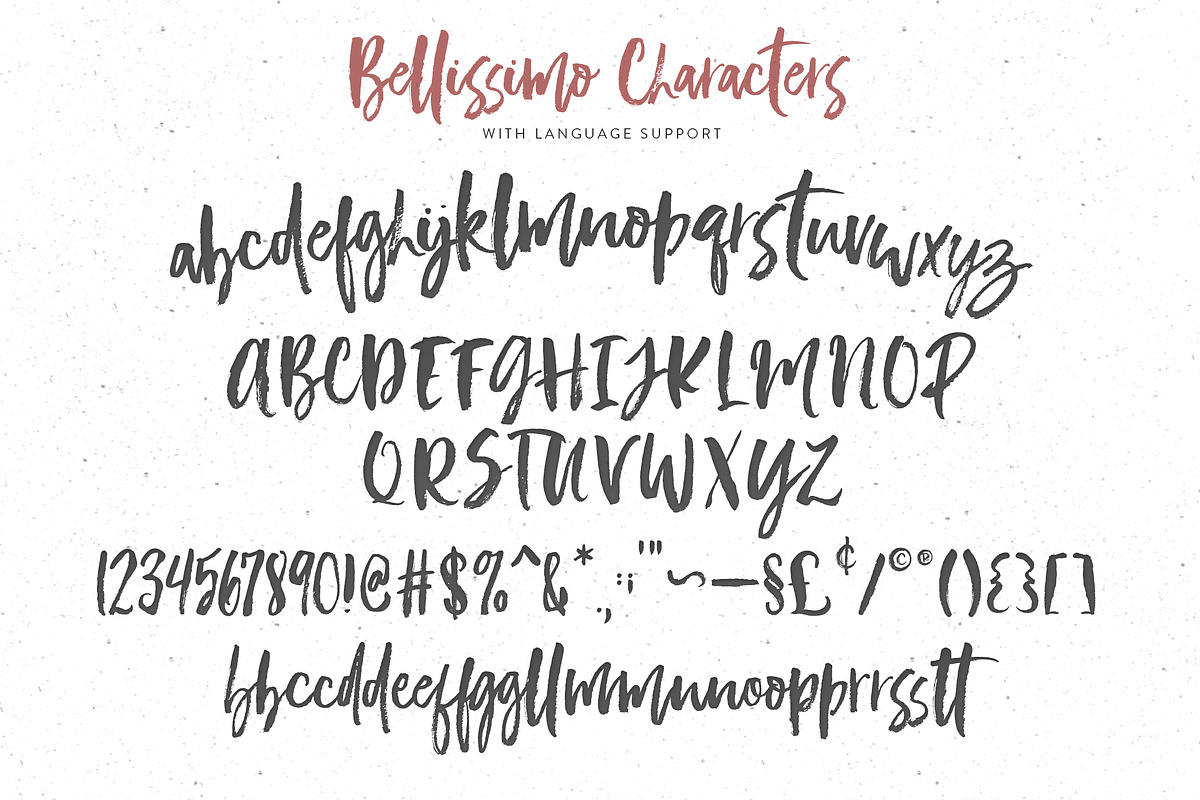 Bellissimo Characters
WITH LANGUAGE SUPPORT
abcdefghijklmnopqrstuvwxyz
ABCDEFGHIJKLMNOP
QRSTUVWXYZ
1234567890!@#$%^&*.,:¡'"~—§£¢/©℗(){}[]
bbccddeeffggllmmnnoopprrsstt